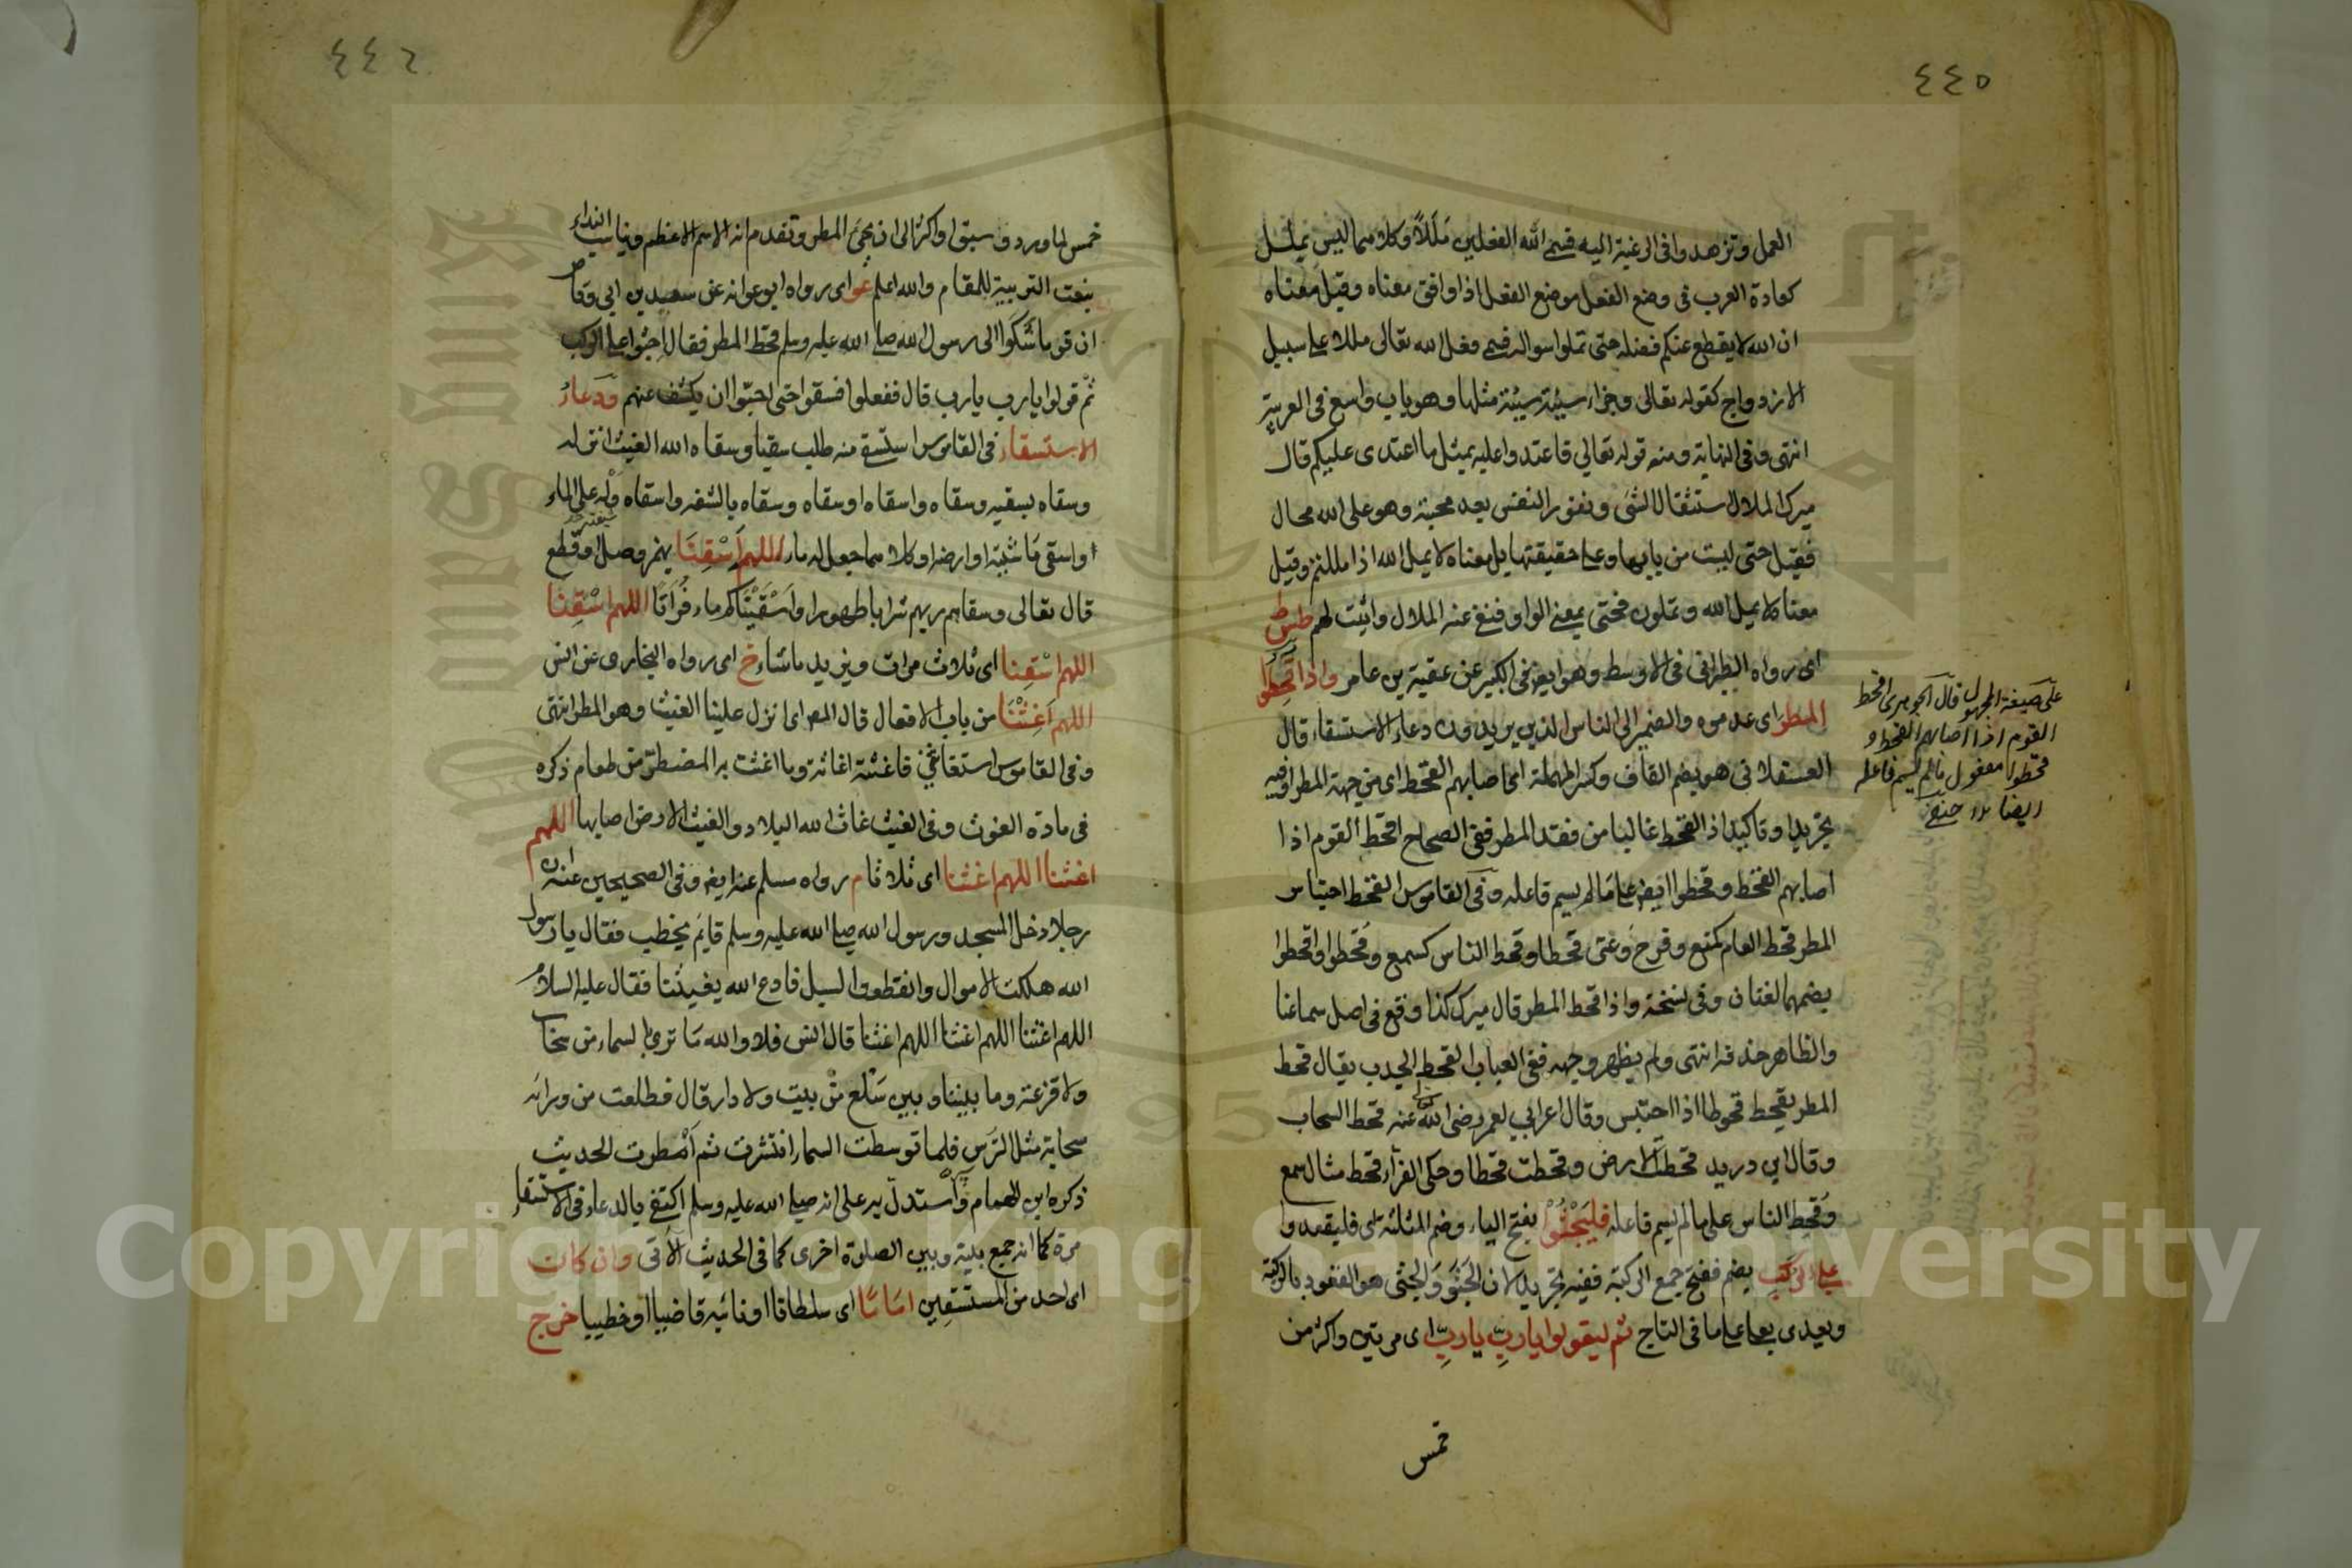 ٤٤٥
العمل وتزهدوا في الرغبة اليه فسمى الله الفعلين مَلَلاً وكلاهما ليس بملل
كعادة العرب في وضع الفعل موضع الفعل اذا وافق معناه وقيل معناه
ان الله لا يقطع عنكم فضله حتى تملوا سواله فسمى فعل الله تعالى مللا على سبيل
الازدواج كقوله تعالى وجزاء سيئة سيئة مثلها وهو باب واسع في العربية
انتهى وفي النهاية ومنه قوله تعالي فاعتدوا عليه بمثل ما اعتدى عليكم قال
ميرك الملال استثقال الشئ ونفور النفس بعد محبته وهو على الله محال
فقيل حتى ليست من بابها وعلى حقيقتها بل معناه لا يمل الله اذا مللتم وقيل
معناه لا يمل الله وتملون فحتى بمعنى الواو فنفى عنه الملال واثبت لهم طس ط
اى رواه الطبراني في الاوسط وهو ايضا في الكبير عن عقبة بن عامر واذا قُحِطُوا
المطر اى عدموه والضمير الى الناس الذين يريدون دعاء الاستسقاء قال
العسقلاني هو بضم القاف وكسر المهملة اى اصابهم القحط اى من جهة المطر ففيه
تجريد او تاكيد اذ القحط غالبا من فقد المطر ففي الصحاح اقحط القوم اذا
اصابهم القحط وقحطوا ايضا على ما لم يسم فاعله وفي القاموس القحط احتباس
المطر قحط العام كمنع وفرح وعنى قحطا وقحط الناس كسمع وقُحطوا واقحطوا
بضمهما لغتان وفي نسخة واذا قحط المطر قال ميرك كذا وقع في اصل سماعنا
والظاهر حذفه انتهى ولم يظهر وجهه ففي العباب القحط الجدب يقال قحط
المطر يقحط قحوطا اذا احتبس وقال اعرابي لعمر رضى الله عنه قحط السحاب
وقال ابن دريد قحطت الارض وقحطت قحطا وحكى الفرآء قحط مثال سمع
وقُحِط الناس على ما لم يسم فاعله فليَجْثُوْا بفتح الياء وضم المثلثة اى فليقعدوا
على الرُكَب بضم ففتح جمع الركبة ففيه تجريد لان الجَثْوَ وَالجثى هو القعود بالركبة
ويعدى بعلى على ما في التاج ثم ليقولوا ياربِّ ياربِّ اى مرتين واكثر من
خمس
على صيغة المجهول قال الجوهرى اقحط
القوم اذا اصابهم القحط و
قحطوا مفعول ما لم يسم فاعله
ايضا
٤٤٦
خمس لما ورد وسبق او اكثر الى ان يجئ المطر وتقدم انه الاسم الاعظم ويناسب النداء
بنعت التربية للمقام والله اعلم عو اى رواه ابو عوانه عن سعيد بن ابي وقاص
ان قوما شَكَوا الى رسول الله صلى الله عليه وسلم قحط المطر فقال اجثوا على الركب
ثم قولوا يارب يارب قال ففعلوا فسقوا حتى احبّوا ان يكشف عنهم ودعاءُ
الاستسقاء في القاموس استسقى منه طلب سقيا وسقاه الله الغيث انزله
وسقاه يسقيه وسقاه واسقاه او سقاه وسقاه بالشفه واسقاه دله على الماء
او اسقى مَاشيته او ارضه او كلاهما جعل له ماء اللهم اَسْقِنَا بهمز وصل او قطع
قال تعالى وسقاهم ربهم شرابا طهورا واَسْقَيْنَاكم ماء فُرَاتًا اللهم اسْقِنَا
اللهم اسْقِنا اى ثلاث مرات ويزيد ما شاء خ اى رواه البخارى عن انس
اللهم اَغِثْنَا من باب الافعال قال المص اى انزل علينا الغيث وهو المطر انتهى
وفي القاموس استغاثني فاغثته اغاثة وما اغثت به المضطر من طعام ذكره
في مادة الغوث وفي الغيث غاث الله البلاد والغيث الارض اصابها اللهم
اغثنا اللهم اغثنا اى ثلاثا م رواه مسلم عنه ايضا وفي الصحيحين عنه ان
رجلا دخل المسجد ورسول الله صلى الله عليه وسلم قايم يخطب فقال يا رسول
الله هلكت الاموال وانقطعوا السبل فادع الله يغيثنا فقال عليه السلام
اللهم اغثنا اللهم اغثنا اللهم اغثنا قال انس فلا والله مَا نرى بالسماء من سحاب
ولا قزعة وما بيننا وبين سَلْع من بيت ولا دار قال فطلعت من ورائه
سحابة مثل الترس فلما توسطت السماء انتشرت ثم اَمْطرت الحديث
ذكره ابن الهمام واستدل به على انه صلى الله عليه وسلم اكتفى بالدعاء في الاستسقاء
مرة كما انه جمع بينه وبين الصلوة اخرى كما في الحديث الآتى وان كانت
اى احد من المستسقين امَامًا اى سلطانا او نائبه قاضيا او خطيبا خرج
Copyright © King Saud University